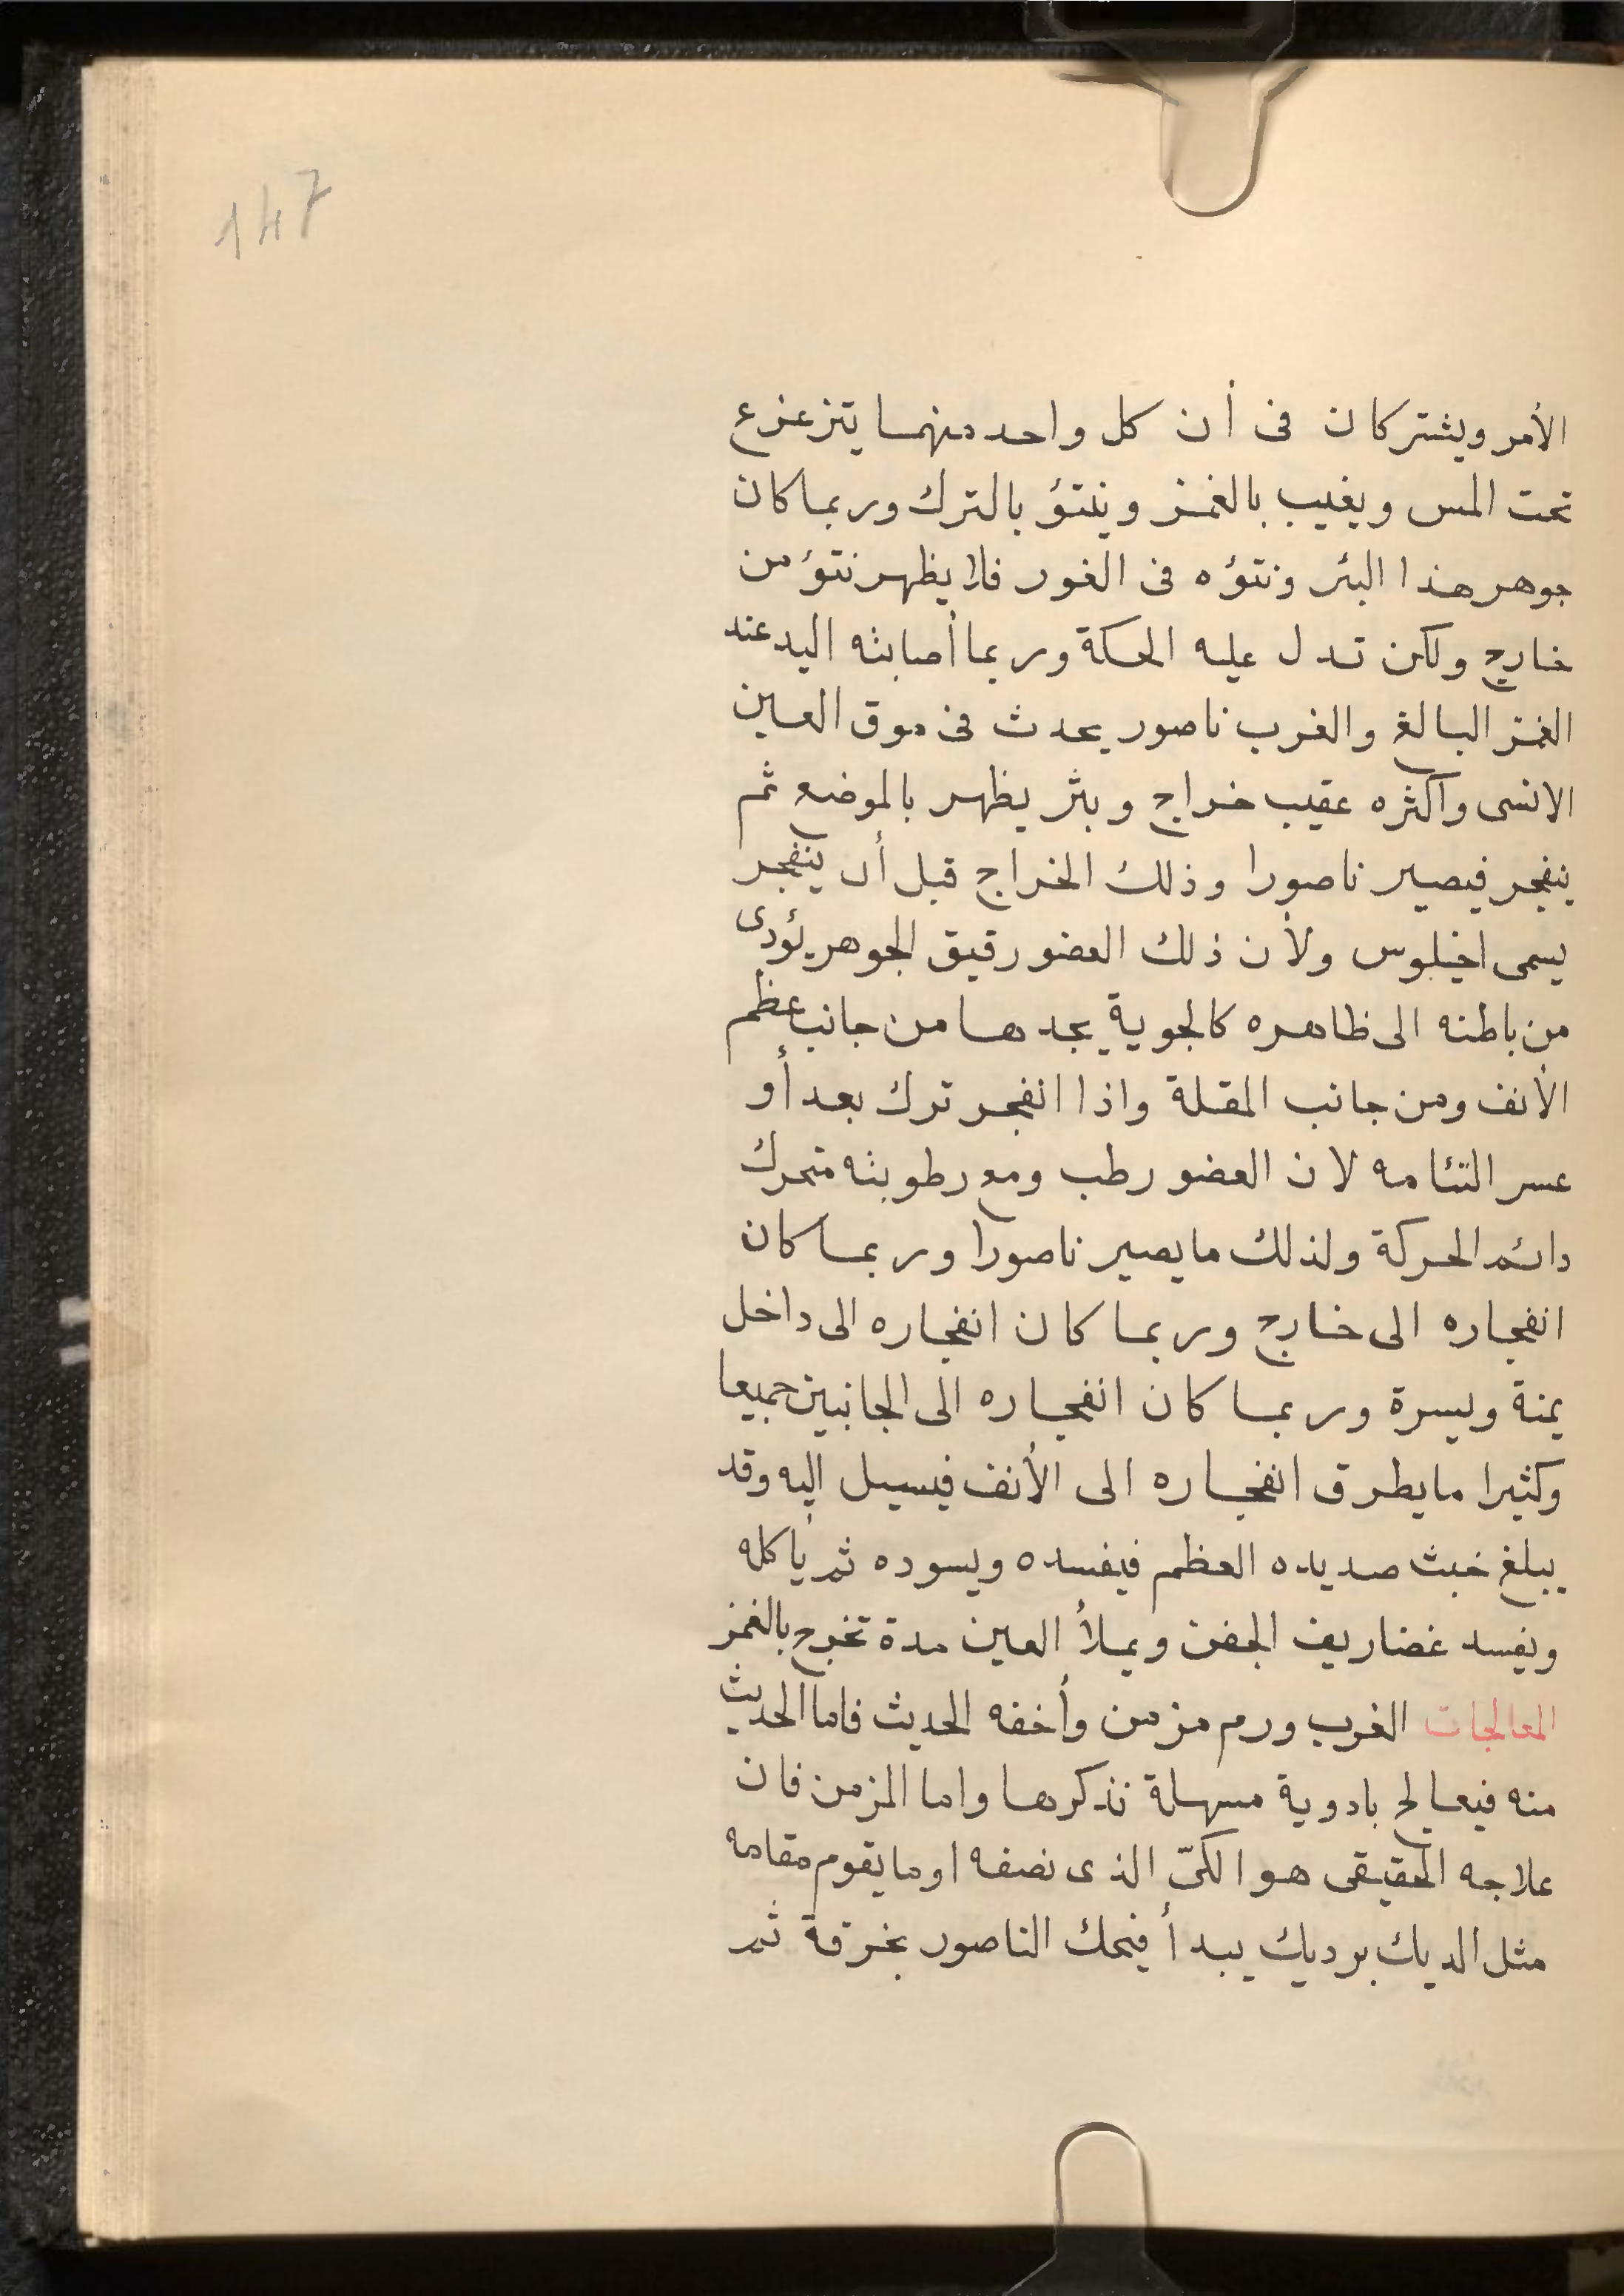 147
الأمر ويشتركان فى أن كل واحد منهما يتزعزع
تحت المس ويغيب بالغمز وينتؤ بالترك وربما كان
جوهر هذا البثر ونتؤه فى الغور فلا يظهر نتؤ من
خارج ولكن تدل عليه الحكة وربما أصابته اليد عند
الغمز البالغ والغرب ناصور يحدث فى موق العين
الانسى واكثره عقيب خراج وبثر يظهر بالموضع ثم
ينفجر فيصير ناصورا وذلك الخراج قبل أن ينفجر
يسمى اخيلوس ولأن ذلك العضو رقيق الجوهر يؤدى
من باطنه الى ظاهره كالجوية يجدها من جانب عظم
الأنف ومن جانب المقلة واذا انفجر ترك بعد أو
عسر التئامه لان العضو رطب ومع رطوبته متحرك
دائم الحركة ولذلك ما يصير ناصورا وربما كان
انفجاره الى خارج وربما كان انفجاره الى داخل
يمنة ويسرة وربما كان انفجاره الى الجانبين جميعا
وكثيرا ما يطرق انفجاره الى الأنف فيسيل إليه وقد
يبلغ خبث صديده العظم فيفسده ويسوده ثم يأكله
ويفسد غضاريف الجفن ويملأ العين مدة تخرج بالغمز
المعالجات الغرب ورم مزمن وأخفه الحديث فاما الحديث
منه فيعالج بادوية مسهلة نذكرها واما المزمن فان
علاجه الحقيقى هو الكىّ الذى نصفه او ما يقوم مقامه
مثل الديك برديك يبدأ فيحك الناصور بخرقة ثم